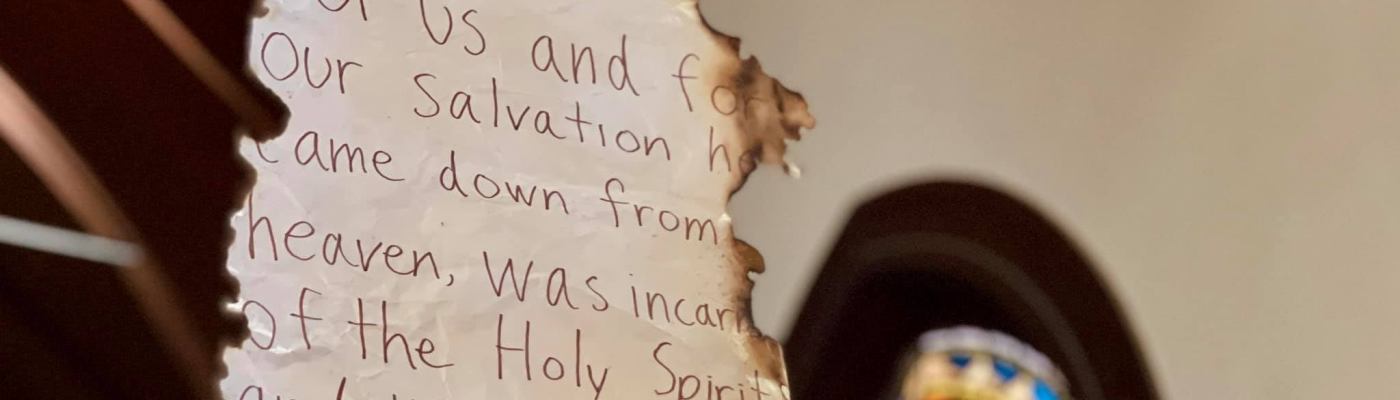 us and for
Our Salvation he
came down from
heaven, was incar
of the Holy Spirit